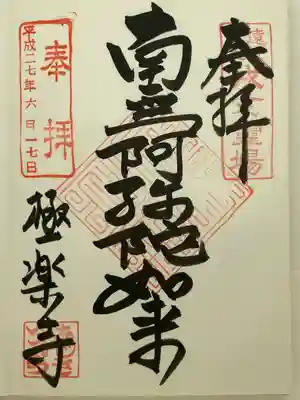 奉拝
南無阿弥陀如来
極楽寺
奉拝
平成二七年六月一七日